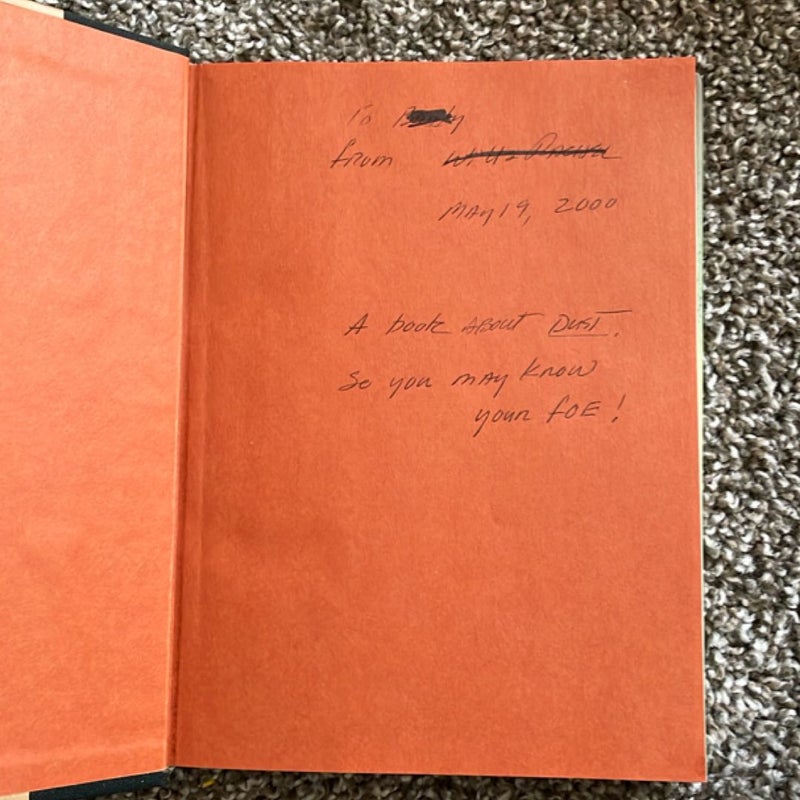 To
from
MAY 19, 2000
A book ABOUT DUST.
So you may know
your foe!